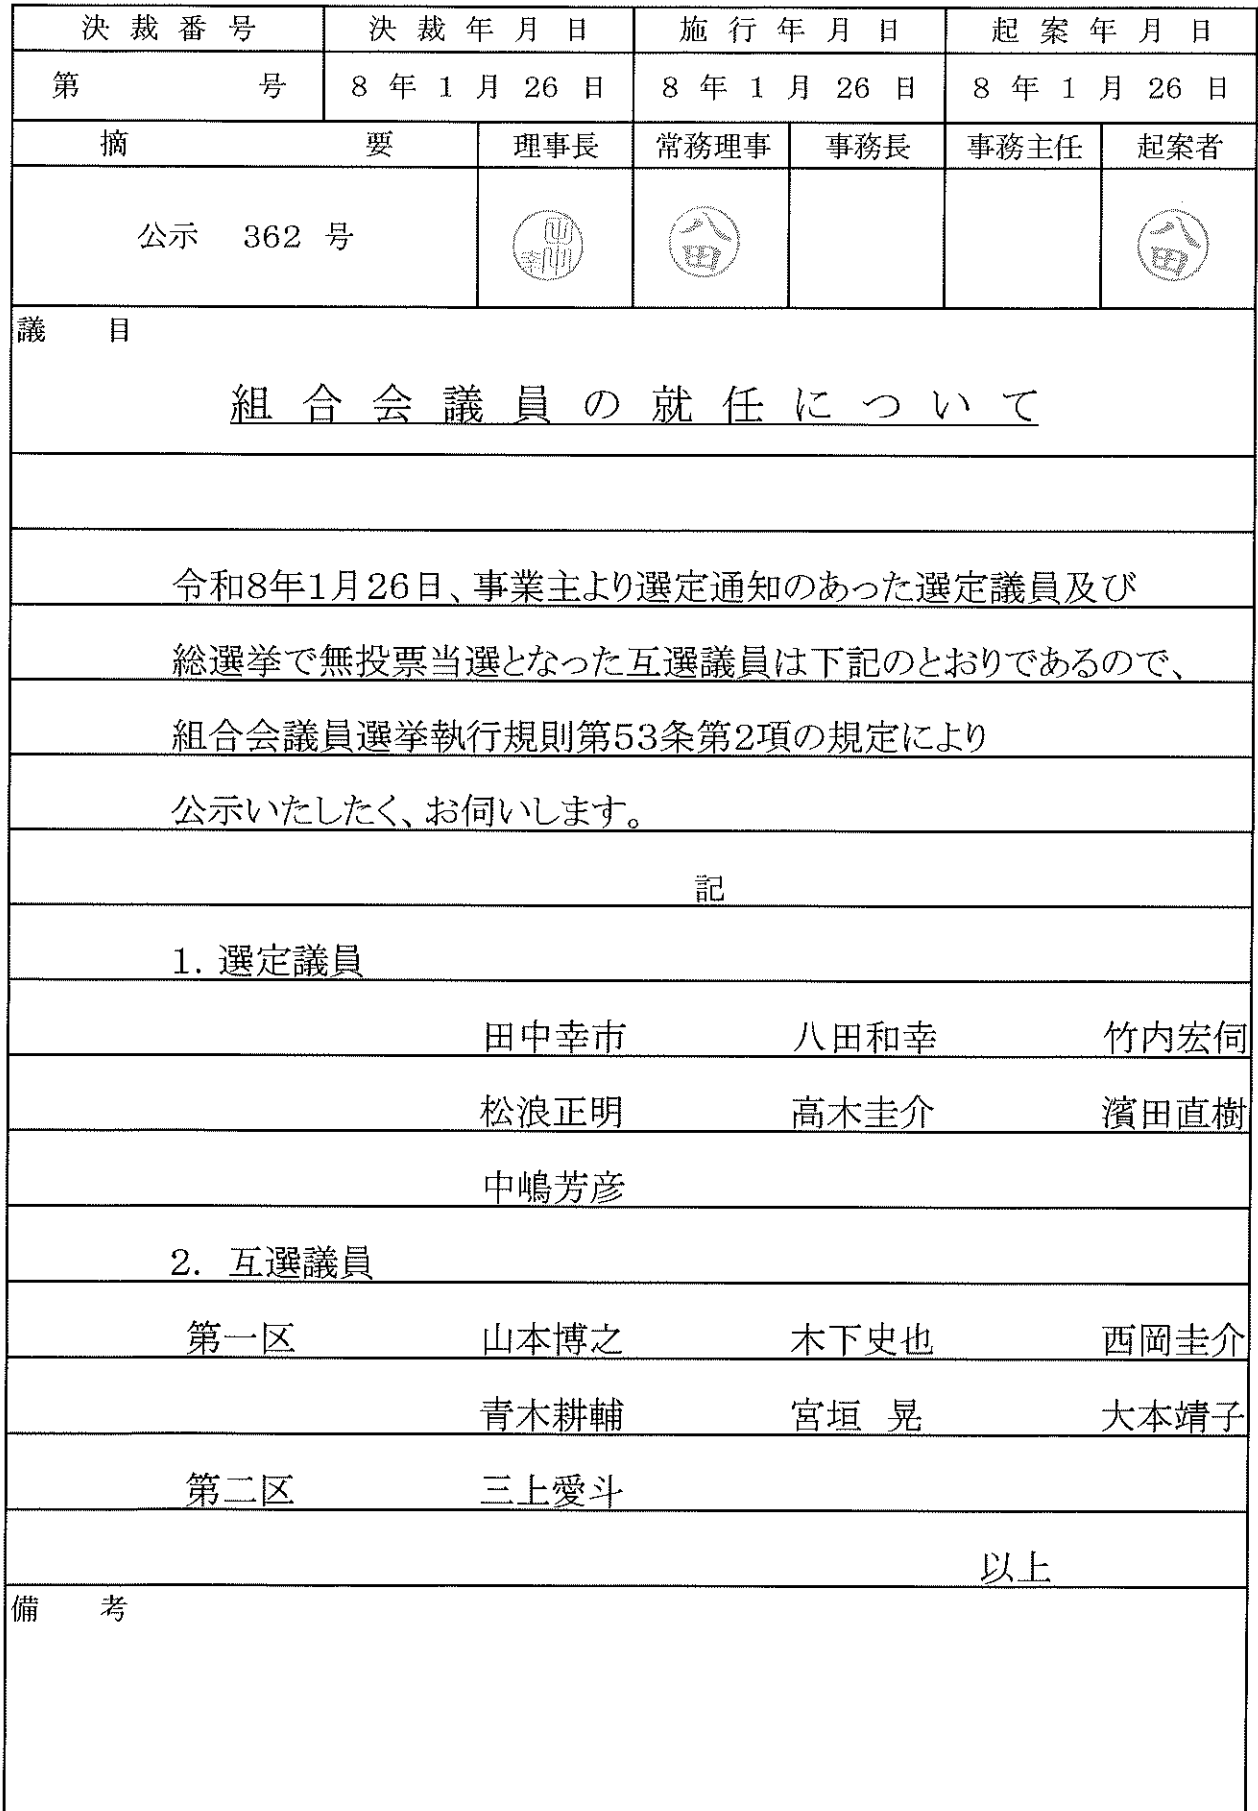 決裁番号 決裁年月日 施行年月日 起案年月日
第 号 8年1月26日 8年1月26日 8年1月26日
摘要 理事長 常務理事 事務長 事務主任 起案者
公示 362 号 八田 八田
議 目
組合会議員の就任について
令和8年1月26日、事業主より選定通知のあった選定議員及び
総選挙で無投票当選となった互選議員は下記のとおりであるので、
組合会議員選挙執行規則第53条第2項の規定により
公示いたしたく、お伺いします。
記
1. 選定議員
田中幸市 八田和幸 竹内宏伺
松浪正明 高木圭介 濱田直樹
中嶋芳彦
2. 互選議員
第一区 山本博之 木下史也 西岡圭介
青木耕輔 宮垣 晃 大本靖子
第二区 三上愛斗
以上
備 考